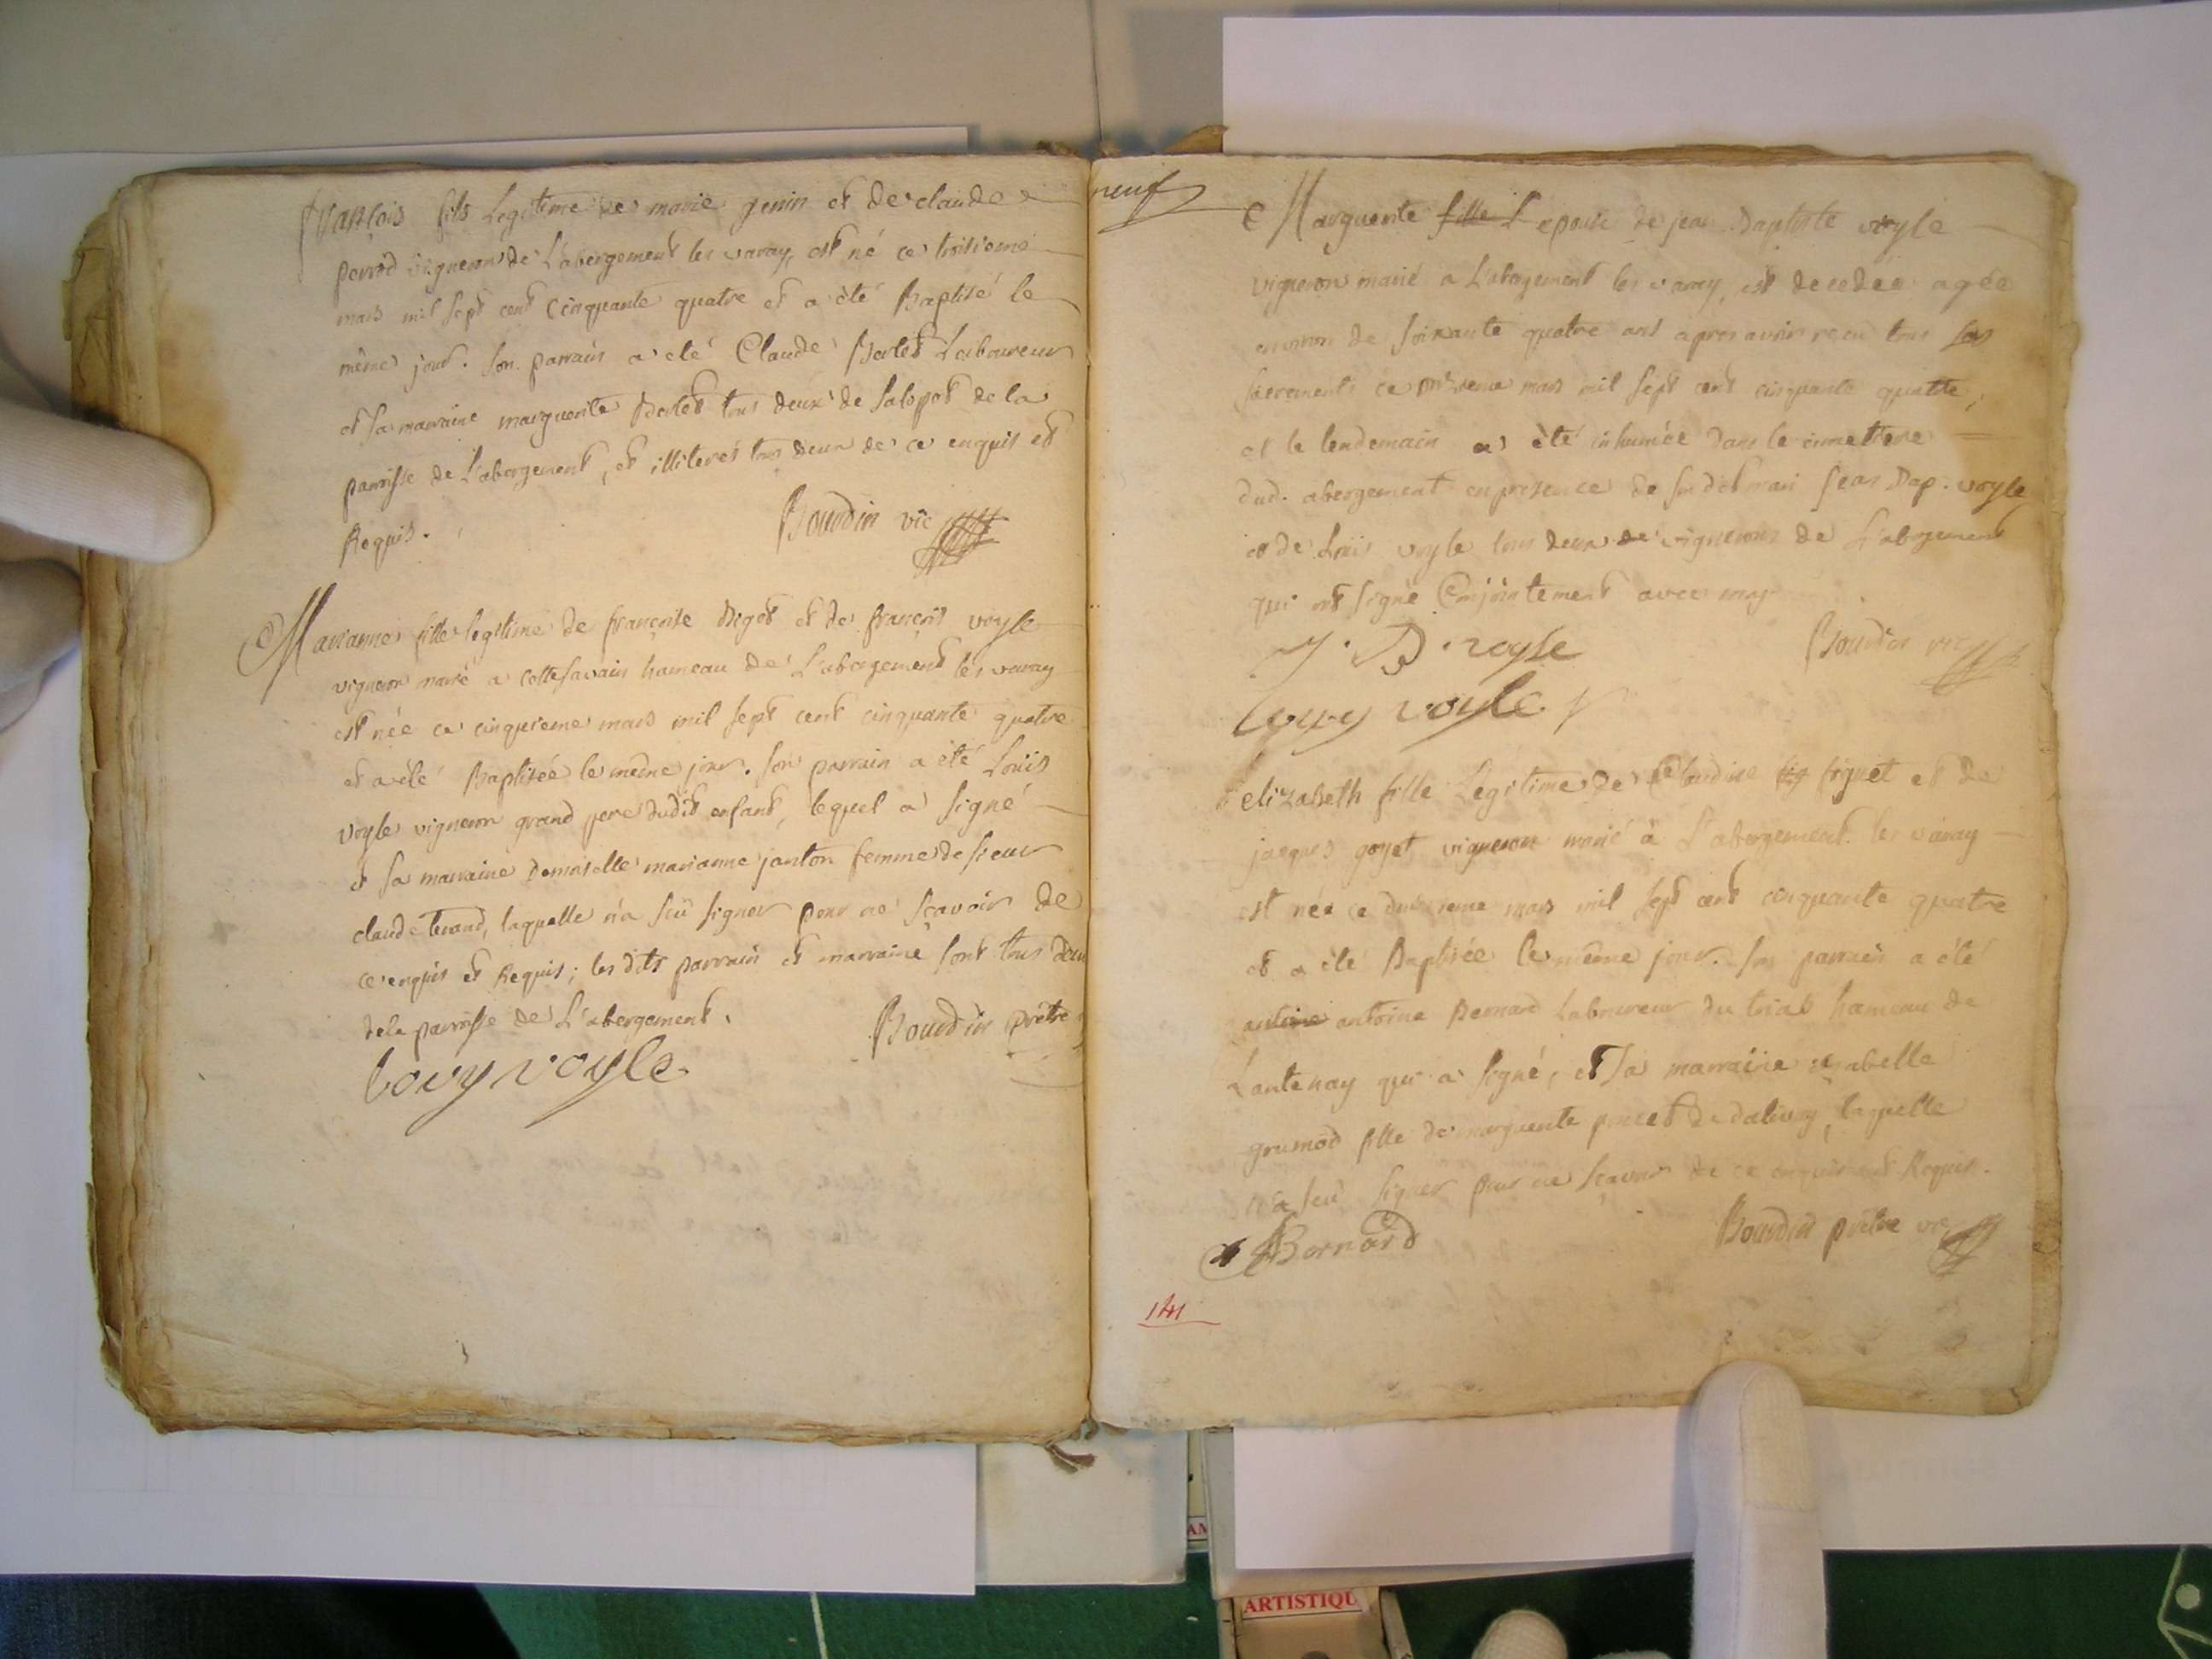 François fils Legitime de marie genin et de claude
perrod vigneron de L'abergement les varay, est né ce troisieme
mars mil sept cent cinquante quatre et a été Baptisé le
même jour. son parrain a eté Claude Berlet Laboureur
et sa marraine marguerite Berlet tous deux de salopet de la
parroisse de L'abergement, et illiterés tous deux de ce enquis et
Requis.
Bourdin vic
Marianne fille legitime de françoise Bigot et de françois voyle
vigneron marié a cottesavain hameau de L'abergement les varay
est née ce cinquieme mars mil sept cent cinquante quatre
et a été Baptisée le même jour. son parrain a été Loüis
voyle vigneron grand pere dudit enfant, lequel a signé
et sa marraine Demoiselle marianne janton femme de sieur
claude terand, laquelle n'a sçu signer pour ne sçavoir de
ce enquis et Requis; les dits parrain et marraine sont tous deux
de la parroisse de L'abergement.
Bourdin prêtre
Louy voyle
neuf
Marguerite fille L epouse de jean Baptiste voyle
vigneron marié a L'abergement les varay, est decedée agée
environ de soixante quatre ans apres avoir reçu tous ses
sacrements ce onzieme mars mil sept cent cinquante quatre,
et le lendemain a été inhumée dans le cimettere
dud. abergement en presence de son dit mari Jean Bap. voyle
et de Loüis voyle tous deux de vignerons de L'abergement
qui ont signé Conjointement avec moy
J. B. voyle
Bourdin vic
Louy voyle
elizabeth fille Legitime de Claudine figuet et de
jacques goyet vigneron marié à L'abergement les varay
est née ce mars mil sept cent cinquante quatre
et a été Baptisée le même jour. son parrain a été
antoine antoine Bernard Laboureur du trial hameau de
Lantenay qui a signé, et sa marraine isabelle
grumod fille de marguerite poncet de dalivoy, laquelle
n'a sçu signer pour ne sçavoir de ce enquise et Requis.
Bourdin prêtre vic
A Bernard
141
ARTISTIQU